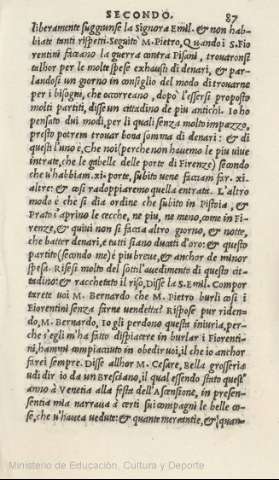 SECONDO. 87
liberamente suggiunse la Signora Emil. & non hab-
biate tanti rispetti. Seguitò M. Pietro, Quando i S. Fio
rentini faceano la guerra contra Pisani, trouaronsi
talhor per le molte spese exhausti di denari, & par-
landosi un giorno in consiglio del modo di trouarne
per i bisogni, che occorreano, dopo l'essersi proposto
molti partiti, disse un cittadino de piu antichi. Io ho
pensato dui modi, per li quali senza molto impazzo,
presto potrem trouar bona somma di denari: & di
questi l'uno è, Che noi (perche non hauemo le piu uiue
intrate, che le gabelle delle porte di Firenze) secondo
che u'habbiam .xi. porte, subito uene facciam far .xi.
altre: & così radoppiaremo quella entrata. L'altro
modo è che si dia ordine che subito in Pistoia, &
Prato s'aprino le cecche, ne piu, ne meno, come in Fi-
renze, & quiui non si faccia altro giorno, & notte,
che batter denari, e tutti siano ducati d'oro: & questo
partito (secondo me) è piu breue, & anchor de minor
spesa. Risesi molto del sottil'auedimento di questo cit-
tadino: & racchetato il riso, Disse la S. Emil. Compor
tarete uoi M. Bernardo che M. Pietro burli così i
Fiorentini senza farne uendetta? Rispose pur riden-
do, M. Bernardo, Io gli perdono questa iniuria, per-
che s'egli m'ha fatto dispiacere in burlar i Fiorenti-
ni, hammi compiaciuto in obedir uoi, il che io anchor
farei sempre. Disse allhor M. Cesare, Bella grosseria
udi dir io da un Bresciano, il qual essendo stato quest'
anno à Venetia alla festa dell'Ascensione, in presen-
sentia mia narraua à certi suoi compagni le belle co-
se, che u'hauea uedute: & quante mercantie, & quan-
Ministerio de Educación, Cultura y Deporte